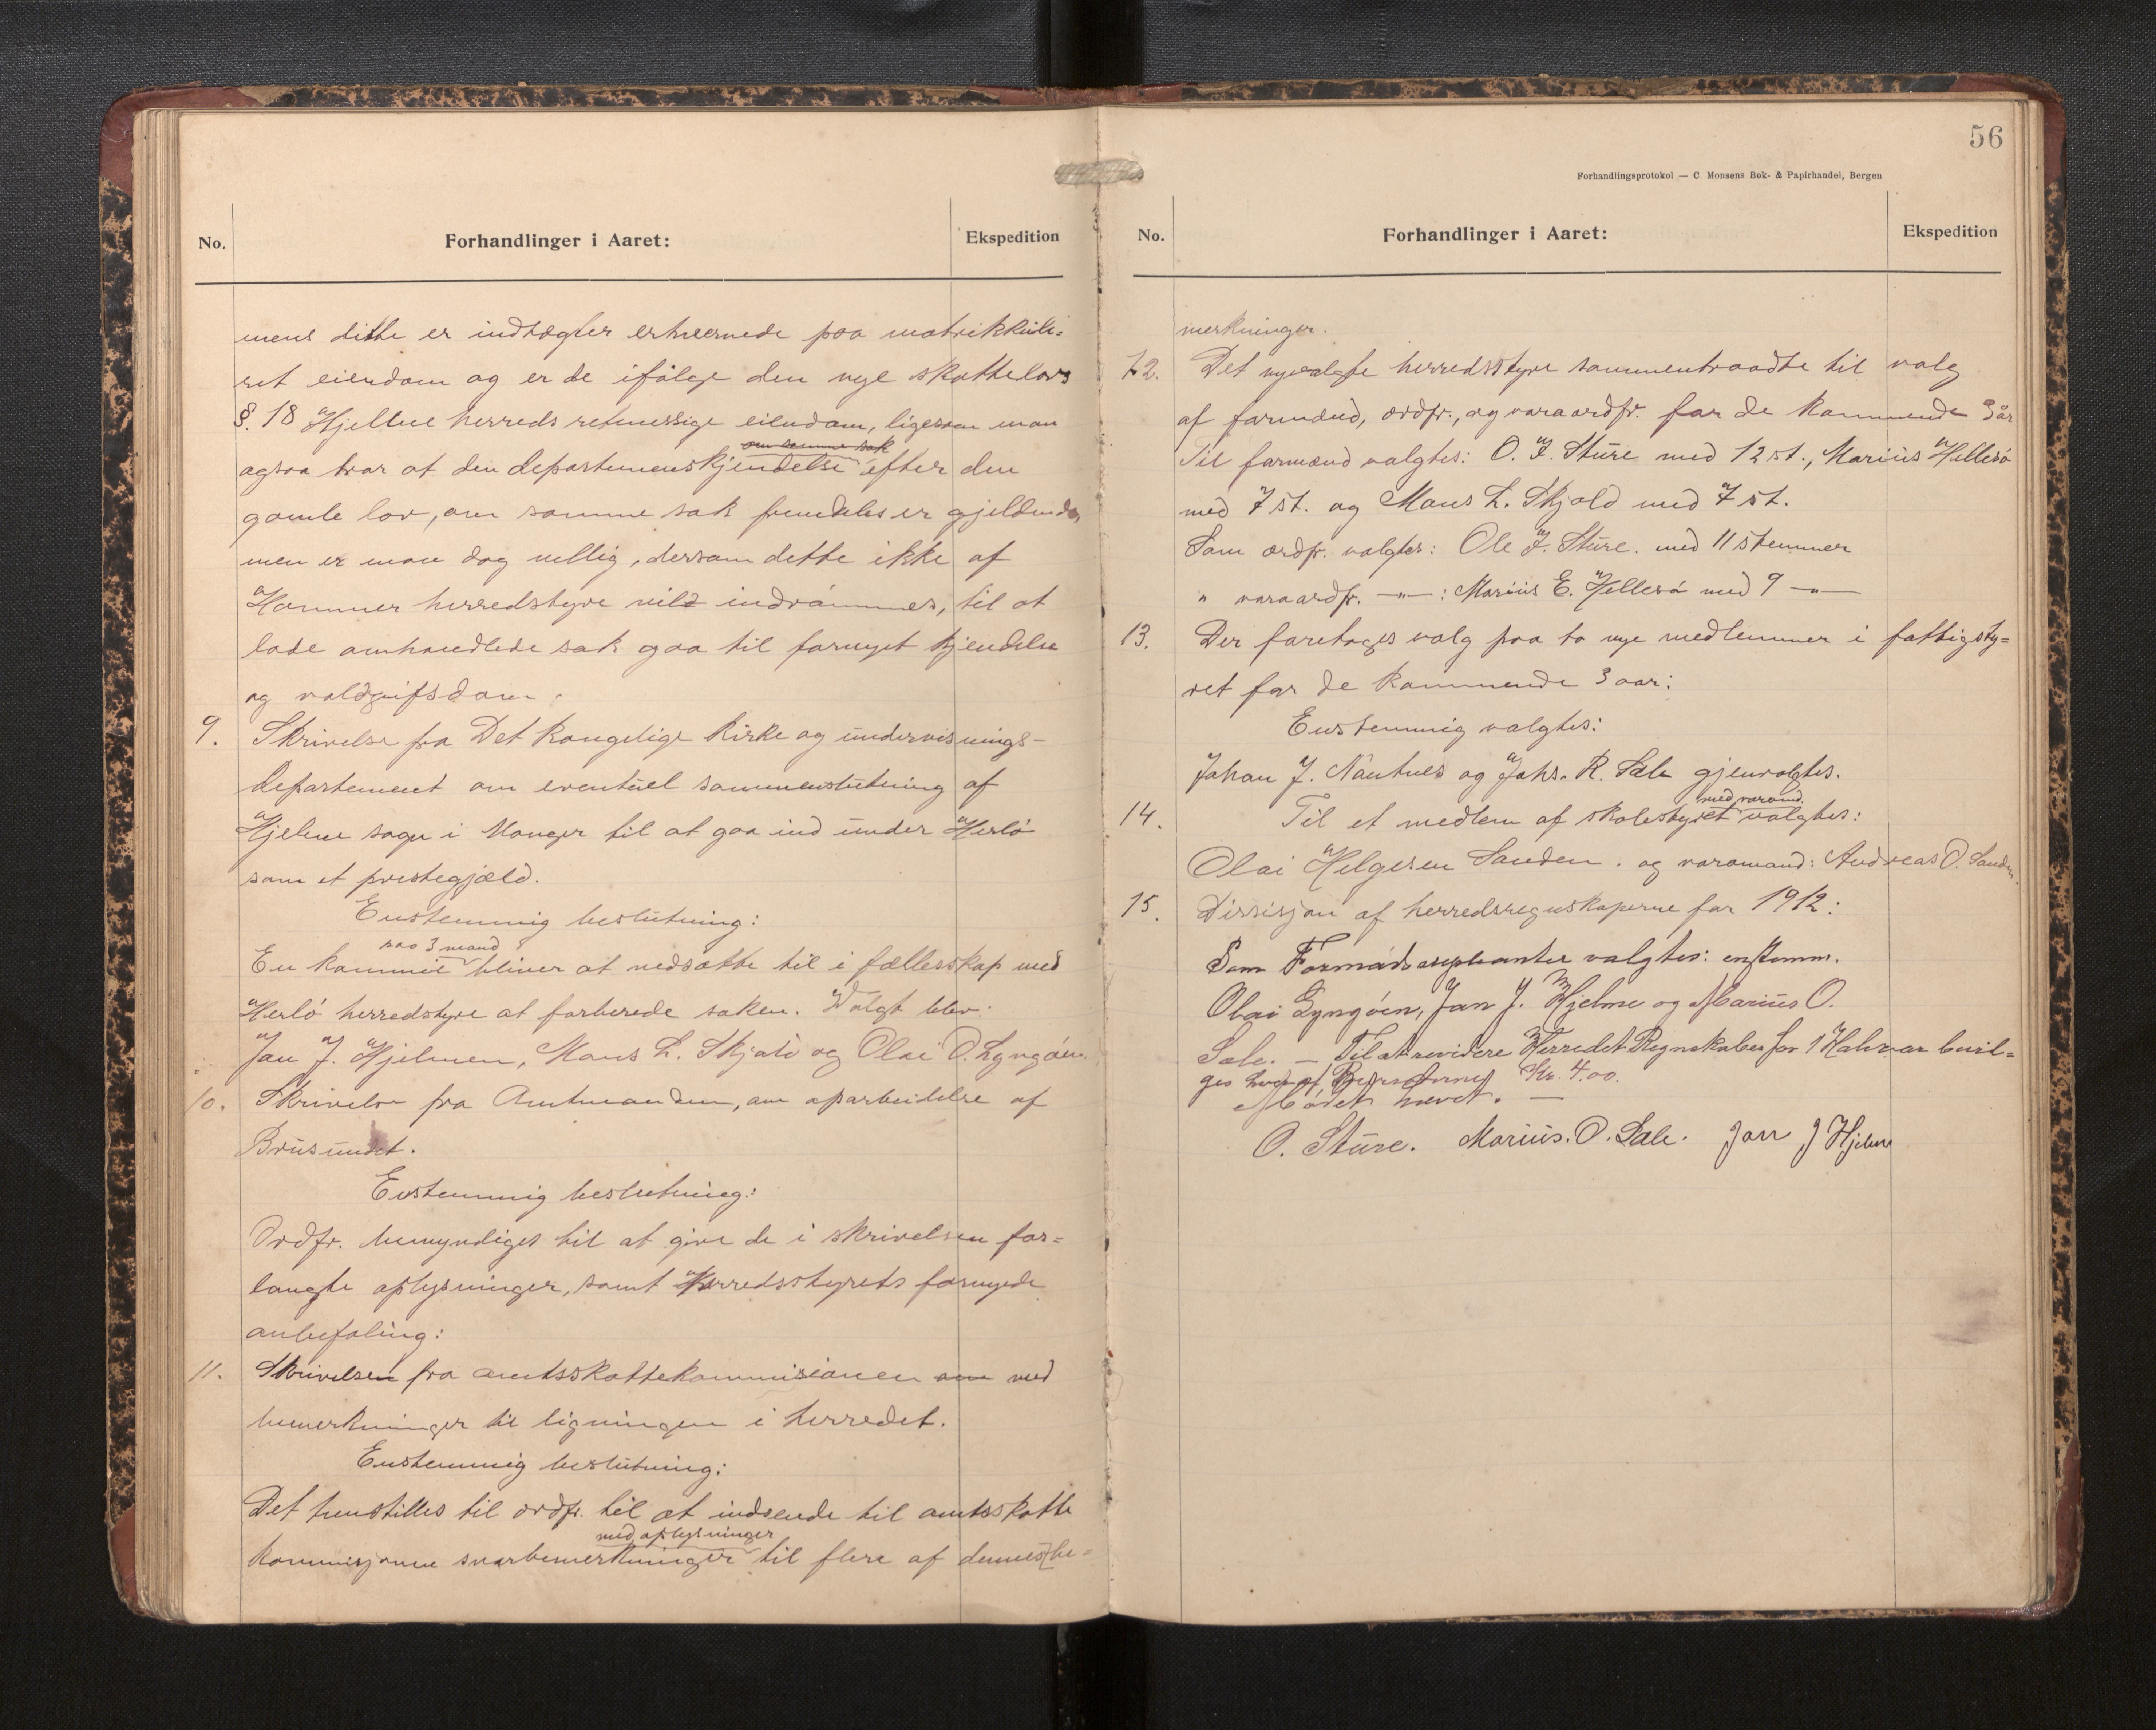 No.
Forhandlinger i Aaret:
Ekspedition
mens ditte er indtægter erhvervede paa matrikkule-
ret eiendom og er de ifölge den nye skattelovs
§. 18 Hjelme herreds retmessige eiendom, ligesom man
om samme sak
ogsaa tror at den departemenskjendelse efter den
gamle lov, om samme sak fremdeles er gjeldende,
men er man dog villig, dersom dette ikke af
Hammer herredstyre vild indrömmes, til at
lade omhandlede sak gaa til fornyet kjendelse
og voldgifsdom.
9. Skrivelse fra Det kongelige Kirke og undervisnings-
departement om eventuel sammenslutning af
Hjelme sogn i Manger til at gaa ind under Herlö
som et prestegjæld.
Enstemmig beslutning:
paa 3 mand
En kommité bliver at nedsætte til i fællesskap med
Herlö herredstyre at forberede saken. Valgt blev:
Jan J. Hjelmen, Mons L. Skjold og Olai O. Lyngöen.
10. Skrivelse fra Amtmanden, om oparbeidelse af
Brusundet.
Enstemmig beslutning:
Ordfr. bemyndiges til at give de i skrivelsen for-
langte oplysninger, samt Herredsstyrets fornyede
anbefaling:
11. Skrivelsen fra amtsskattekommisionen om med
bemerkninger til ligningen i herredet.
Enstemmig beslutning:
Det henstilles til ordfr. til at indsende til amtsskatte
med oplysninger
kommisjonen svarbemerkninger til flere af dennes be-
56
Forhandlingsprotokol — C. Monsens Bok- & Papirhandel, Bergen
No.
Forhandlinger i Aaret:
Ekspedition
merkninger.
12. Det nyvalgte herredsstyre sammentraadte til valg
af formænd, ordfr., og varaordfr. for de kommende 3 år
Til formænd valgtes: O. J. Sture med 12 st., Marius Hellesö
med 7 st. og Mons L. Skjold med 7 st.
Som ordfr. valgtes: Ole J. Sture. med 11 stemmer
" varaordfr. —"—: Marius E. Hellesö med 9 —"—
13. Der foretoges valg paa to nye medlemmer i fattigsty-
ret for de kommende 3 aar:
Enstemmig valgtes:
Johan J. Nautnes og Johs. R. Sæle gjenvalgtes.
med varamd.
14. Til et medlem af skolestyret valgtes:
Olai Helgesen Sanden. og varamand: Andreas O. Sanden.
15. Dissisjon af herredsregnskaperne for 1912:
Som Formands valgtes: enstemm.
Olai Lyngöen, Jan J. Hjelme og Marius O.
Sæle. — Til at revidere Herredet Regnskaber for 1 Halvaar bevil-
ges hver af Kr. 4.00.
Mödet hævet. —
O. Sture. Marius. O. Sæle. Jan J Hjelme